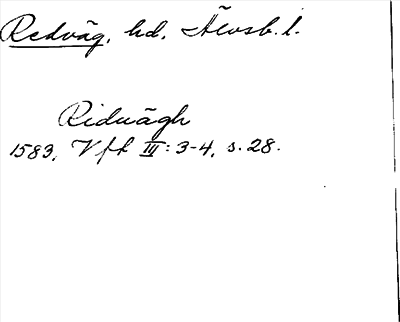 Redväg, hd, Älvsb. l.
Ridwägh
1583, Vfk III: 3-4, s. 28.